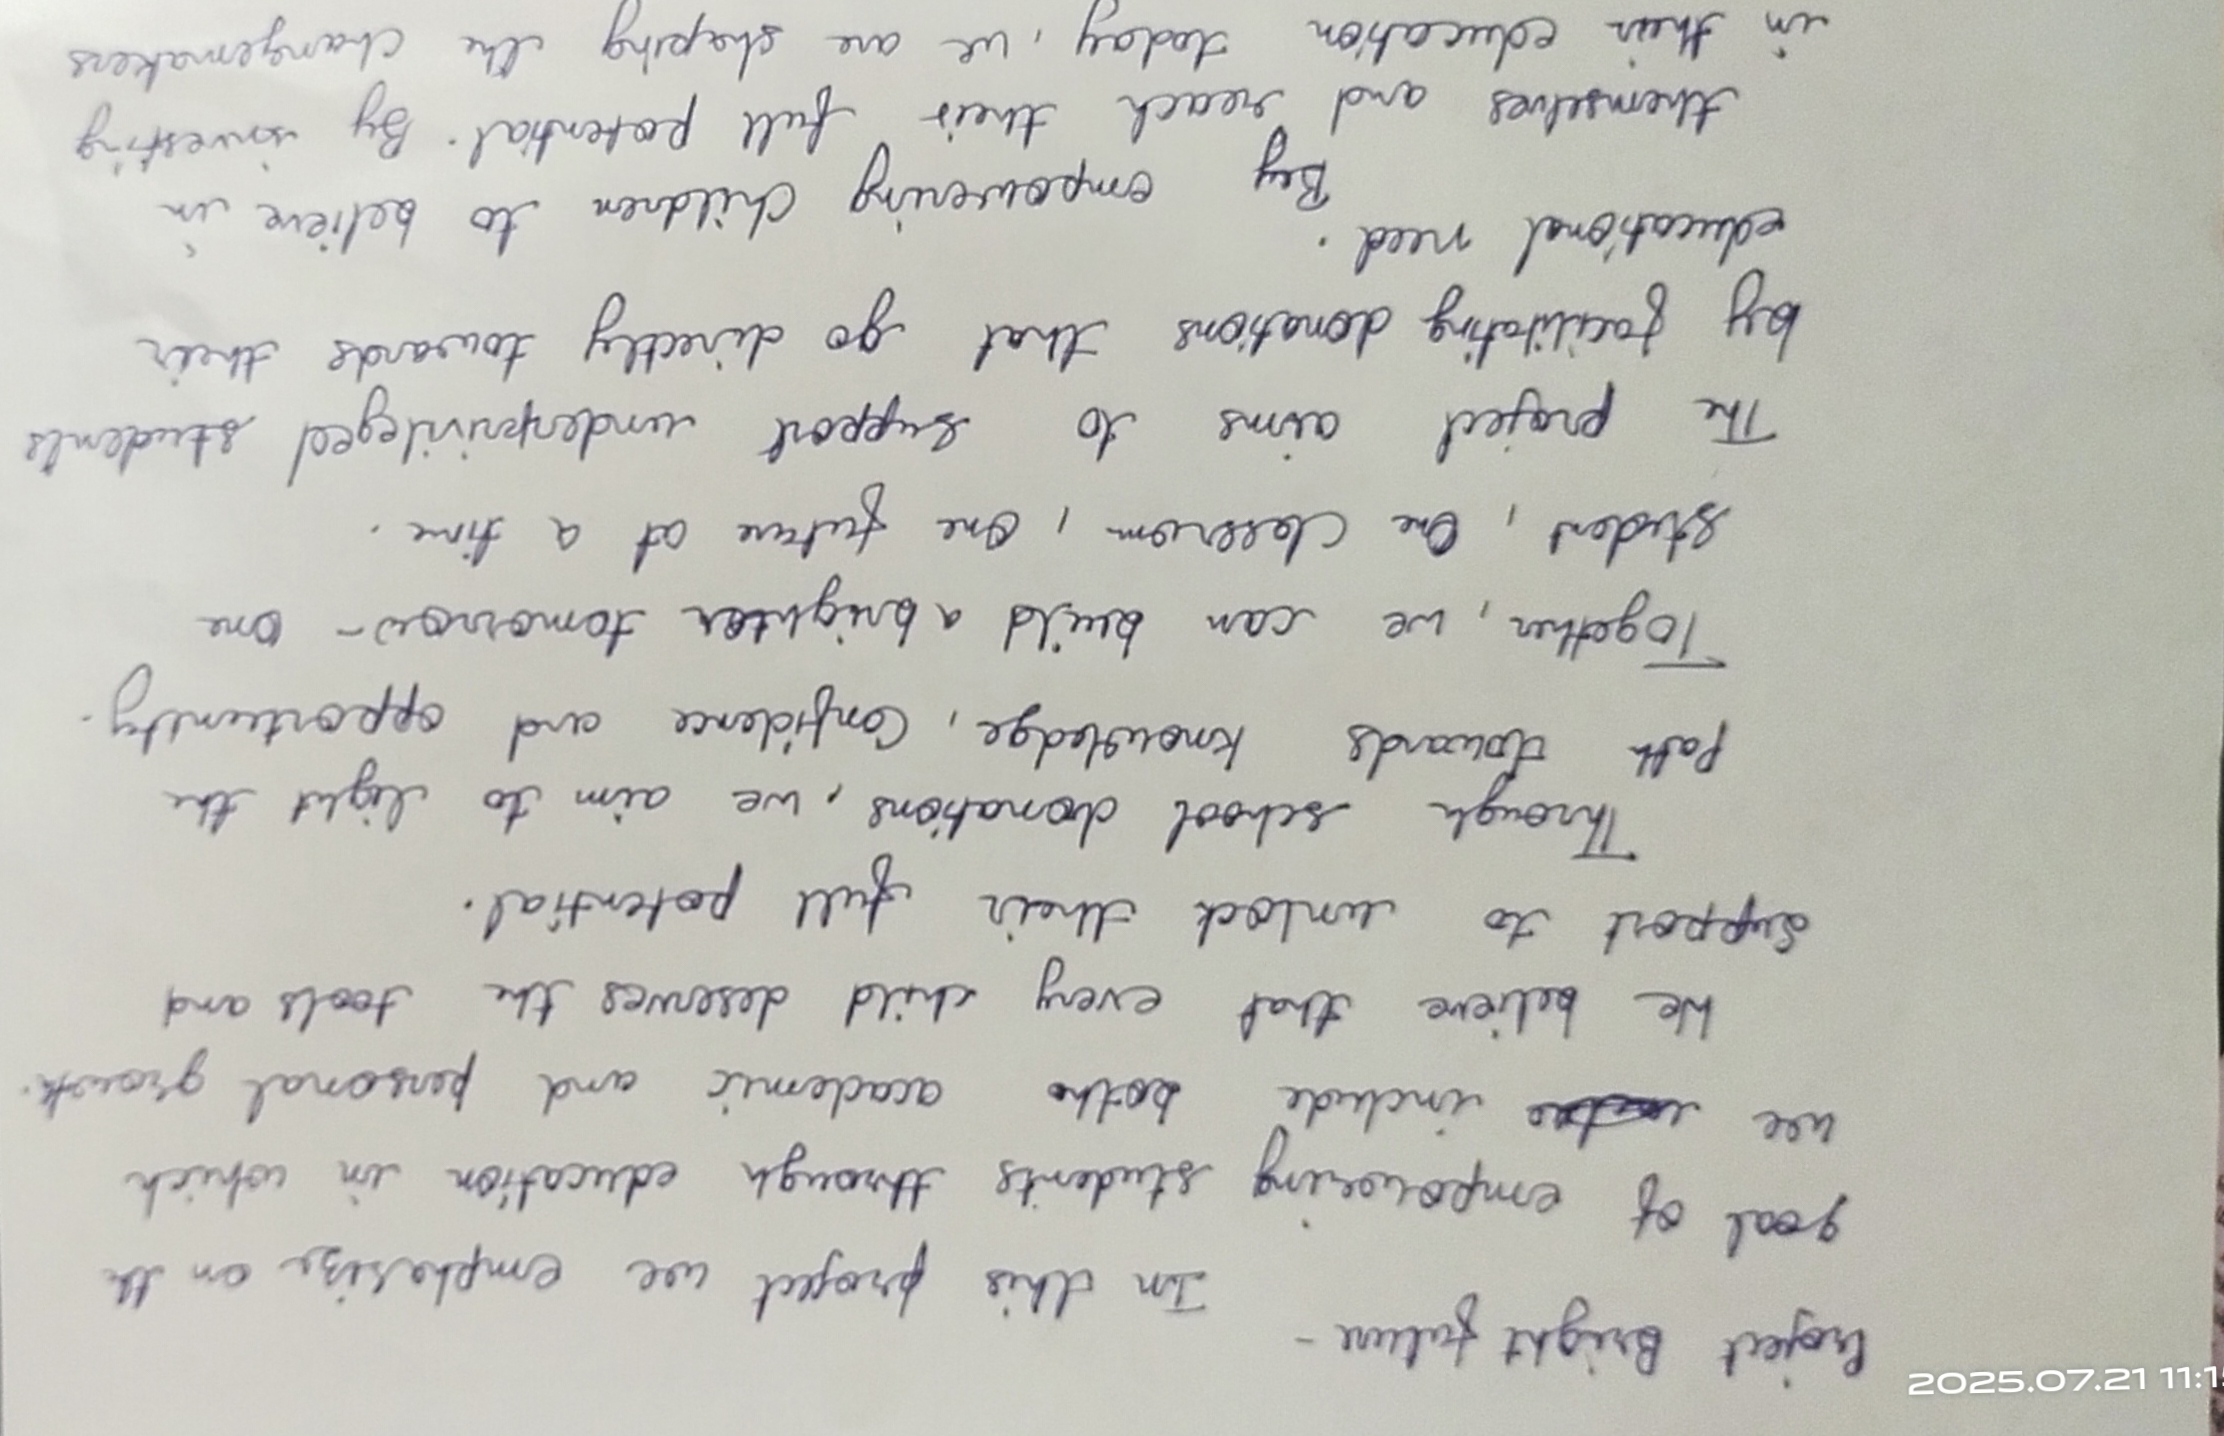 Project Bright future -
In this project we emphasize on the
goal of empowering students through education in which
we include both academic and personal growth.
We believe that every child deserves the tools and
support to unlock their full potential.
Through school donations, we aim to light the
path towards knowledge, Confidence and opportunity.
Together, we can build a brighter tomorrow - One
student, One Classroom, One future at a time.
The project aims to support underprivileged students
by facilitating donations that go directly towards their
educational need.
By empowering Children to believe in
themselves and reach their full potential. By investing
in their education today, we are shaping the Changemakers
2025.07.21 11:1